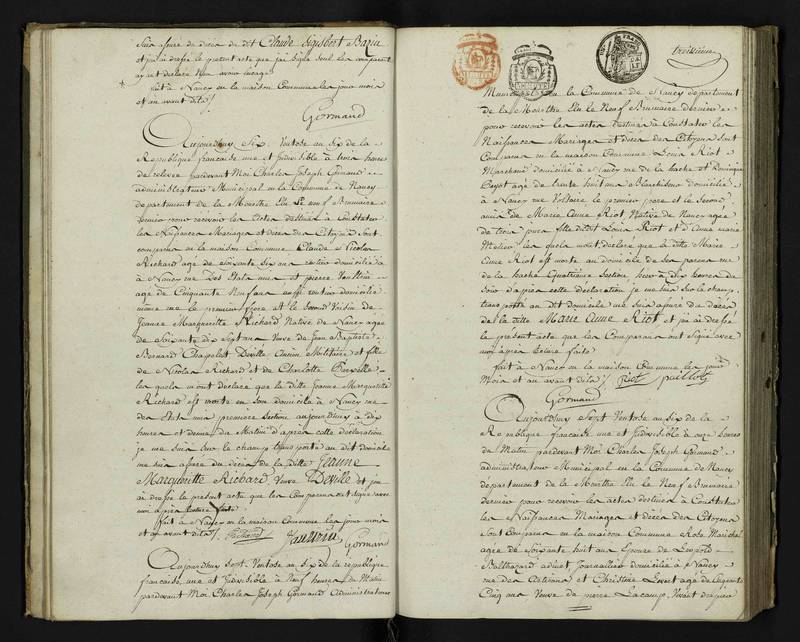 Suis assuré du décès du dit Claude Sigisbert Bazin
et j'ai dressé le présent acte que j'ai signé seul les comparants
ayant déclaré ne savoir
fait à Nancy en la maison Commune les jour mois
et an avant dits /.
Gormand
Aujourdhuy Six Ventose an Six de la
République française une et Indivisible à heures
de relevée pardevant Moi Charles Joseph Gormand
administrateur Municipal en la Commune de Nancy
département de la Meurthe Elu le neuf Brumaire
dernier pour recevoir les Actes destinés à Constater
les Naissances Mariages et décès des Citoyens Sont
comparus en la maison Commune Claude Nicolas
Richard agé de soixante six ans rentier domicilié
à Nancy rue des Etats une et pierre
agé de Cinquante Neuf ans aussi rentier domicilié
même rue le premier frere et le Second Voisin de
Jeanne Marguerite Richard Native de Nancy agée
de Soixante dix Sept ans Veuve de Jean Baptiste
Bernard Chapelot Deville Ancien Militaire et fille
de Nicolas Richard et de Charlotte
les quels m'ont déclaré que la ditte Jeanne Marguerite
Richard est morte en Son domicile à Nancy rue
des Etats une première Section aujourdhuy à dix
heures et demie du Matin d'après cette déclaration
je me suis Sur le champ transporté au dit domicile
me suis assuré du décès de la ditte Jeanne
Marguerite Richard Veuve Deville et j'en
ai dressé le présent acte que les Comparans ont signé avec
moi après lecture faite
fait à Nancy en la maison Commune les jour mois
et an avant dits /. Richard Gormand
Aujourdhuy Sept Ventose an six de la république
française une et Indivisible à Neuf heures du Matin
pardevant Moi Charles Joseph Gormand Administrateur
troisième
Municipal en la Commune de Nancy département
de la Meurthe Elu le Neuf Brumaire dernier
pour recevoir les actes destinés à Constater les
Naissances Mariages et décès des Citoyens Sont
Comparus en la maison Commune Louis Riot
Marchand domicilié à Nancy rue de la hache et Dominique
agé de trente huit ans domicilié
à Nancy rue le premier pere et le Second
ami de Marie Anne Riot Native de Nancy agée
de fille du dit Louis Riot et d'Anne marie
les quels m'ont déclaré que la ditte Marie
Anne Riot est morte au domicile de Son pere rue
de la hache Quatrième Section hier à dix heures du
Soir d'après cette déclaration je me suis Sur le champ
transporté au dit domicile me suis assuré du décès
de la ditte Marie Anne Riot et j'ai dressé
le présent acte que les Comparans ont Signé avec
moi après lecture faite
fait à Nancy en la maison Commune les jour
Mois et an avant dits /. Riot
Gormand
Aujourdhuy Sept Ventose an six de la
République française une et Indivisible à onze heures
du Matin pardevant Moi Charles Joseph Gormand
administrateur Municipal en la Commune de Nancy
département de la Meurthe Elu le Neuf Brumaire
dernier pour recevoir les actes destinés à Constater
les Naissances Mariages et décès des Citoyens
Sont Comparus en la maison Commune Rose Maréchal
agée de Soixante huit ans Epouse de Léopold
Balthazard Journallier domicilié à Nancy
rue des Artisans et Christine agée de Cinquante
Cinq ans Veuve de pierre Lacamp